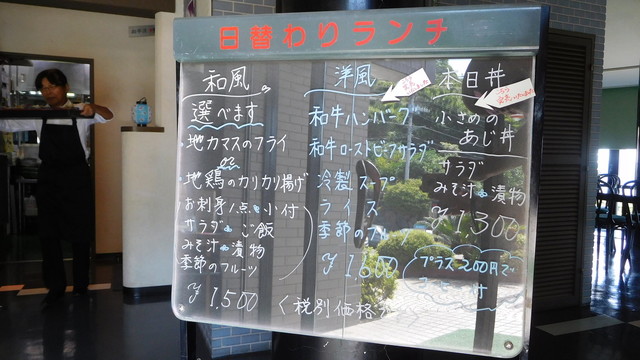 日替わりランチ
和風
選べます
・地カマスのフライ
or
・地鶏のカリカリ揚げ
お刺身1点と小付
サラダ・ご飯
みそ汁・漬物
季節のフルーツ
¥1,500
洋風
和牛ハンバーグ
和牛ローストビーフサラダ
冷製スープ
ライス
季節の
¥1,600
〈税別価格
本日丼
小さめの
あじ丼
サラダ
みそ汁・漬物
¥1,300
プラス200円で